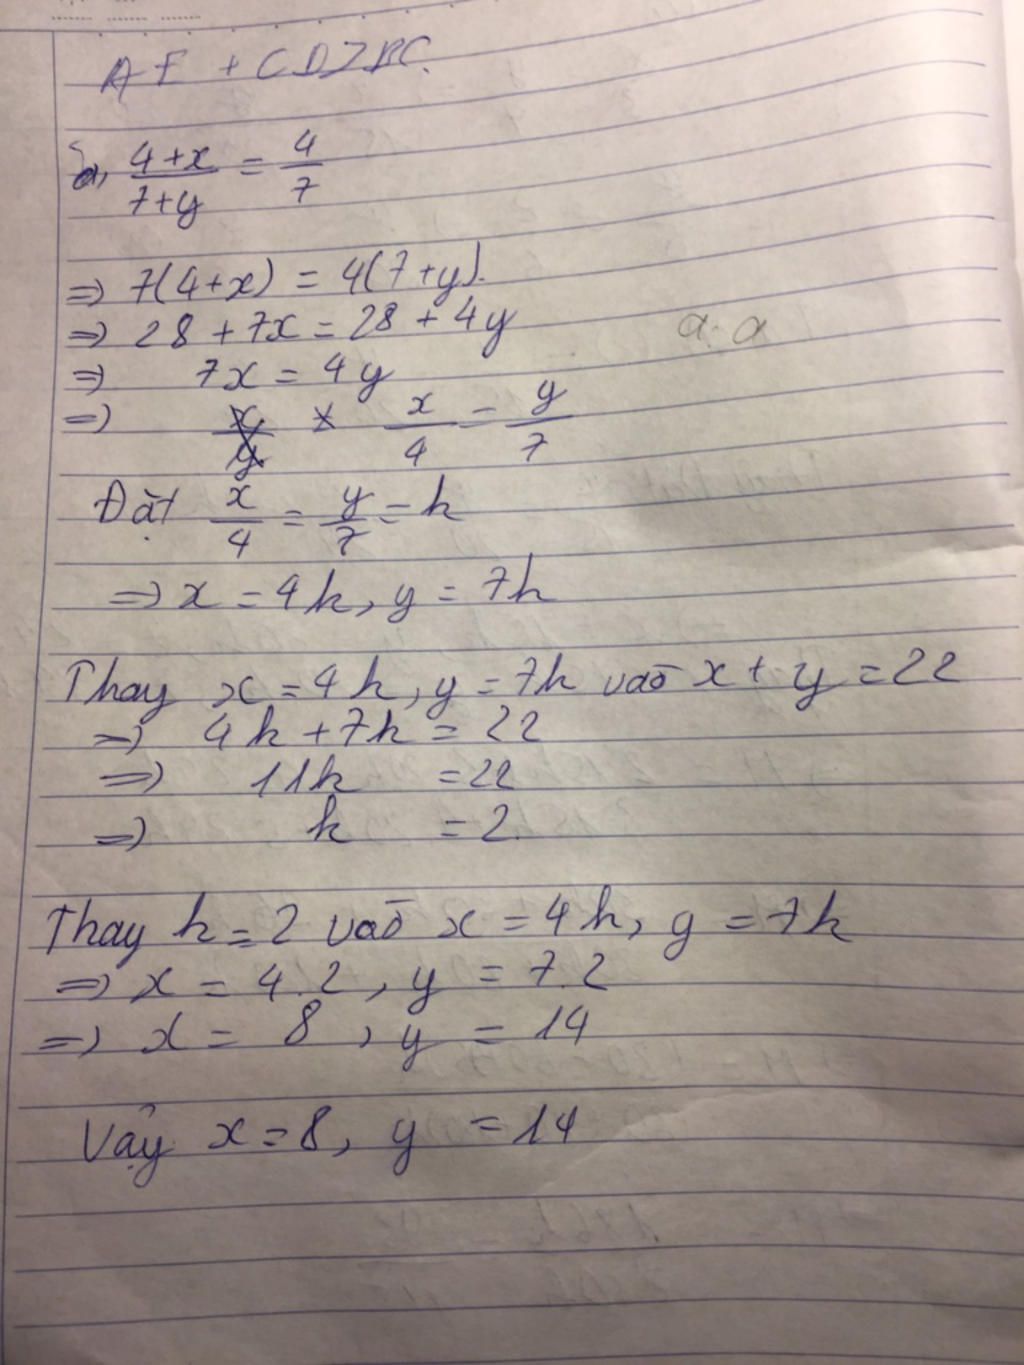 AF + CD > BC.
a, \frac{4+x}{7+y} = \frac{4}{7}
=> 7(4+x) = 4(7+y).
=> 28 + 7x = 28 + 4y
a. a
=> 7x = 4y
=> \frac{x}{4} = \frac{y}{7}
Đặt \frac{x}{4} = \frac{y}{7} = k
=> x = 4k, y = 7k
Thay x = 4k, y = 7k vào x + y = 22
=> 4k + 7k = 22
=> 11k = 22
=> k = 2.
Thay k = 2 vào x = 4k, y = 7k
=> x = 4.2, y = 7.2
=> x = 8, y = 14
Vậy x = 8, y = 14